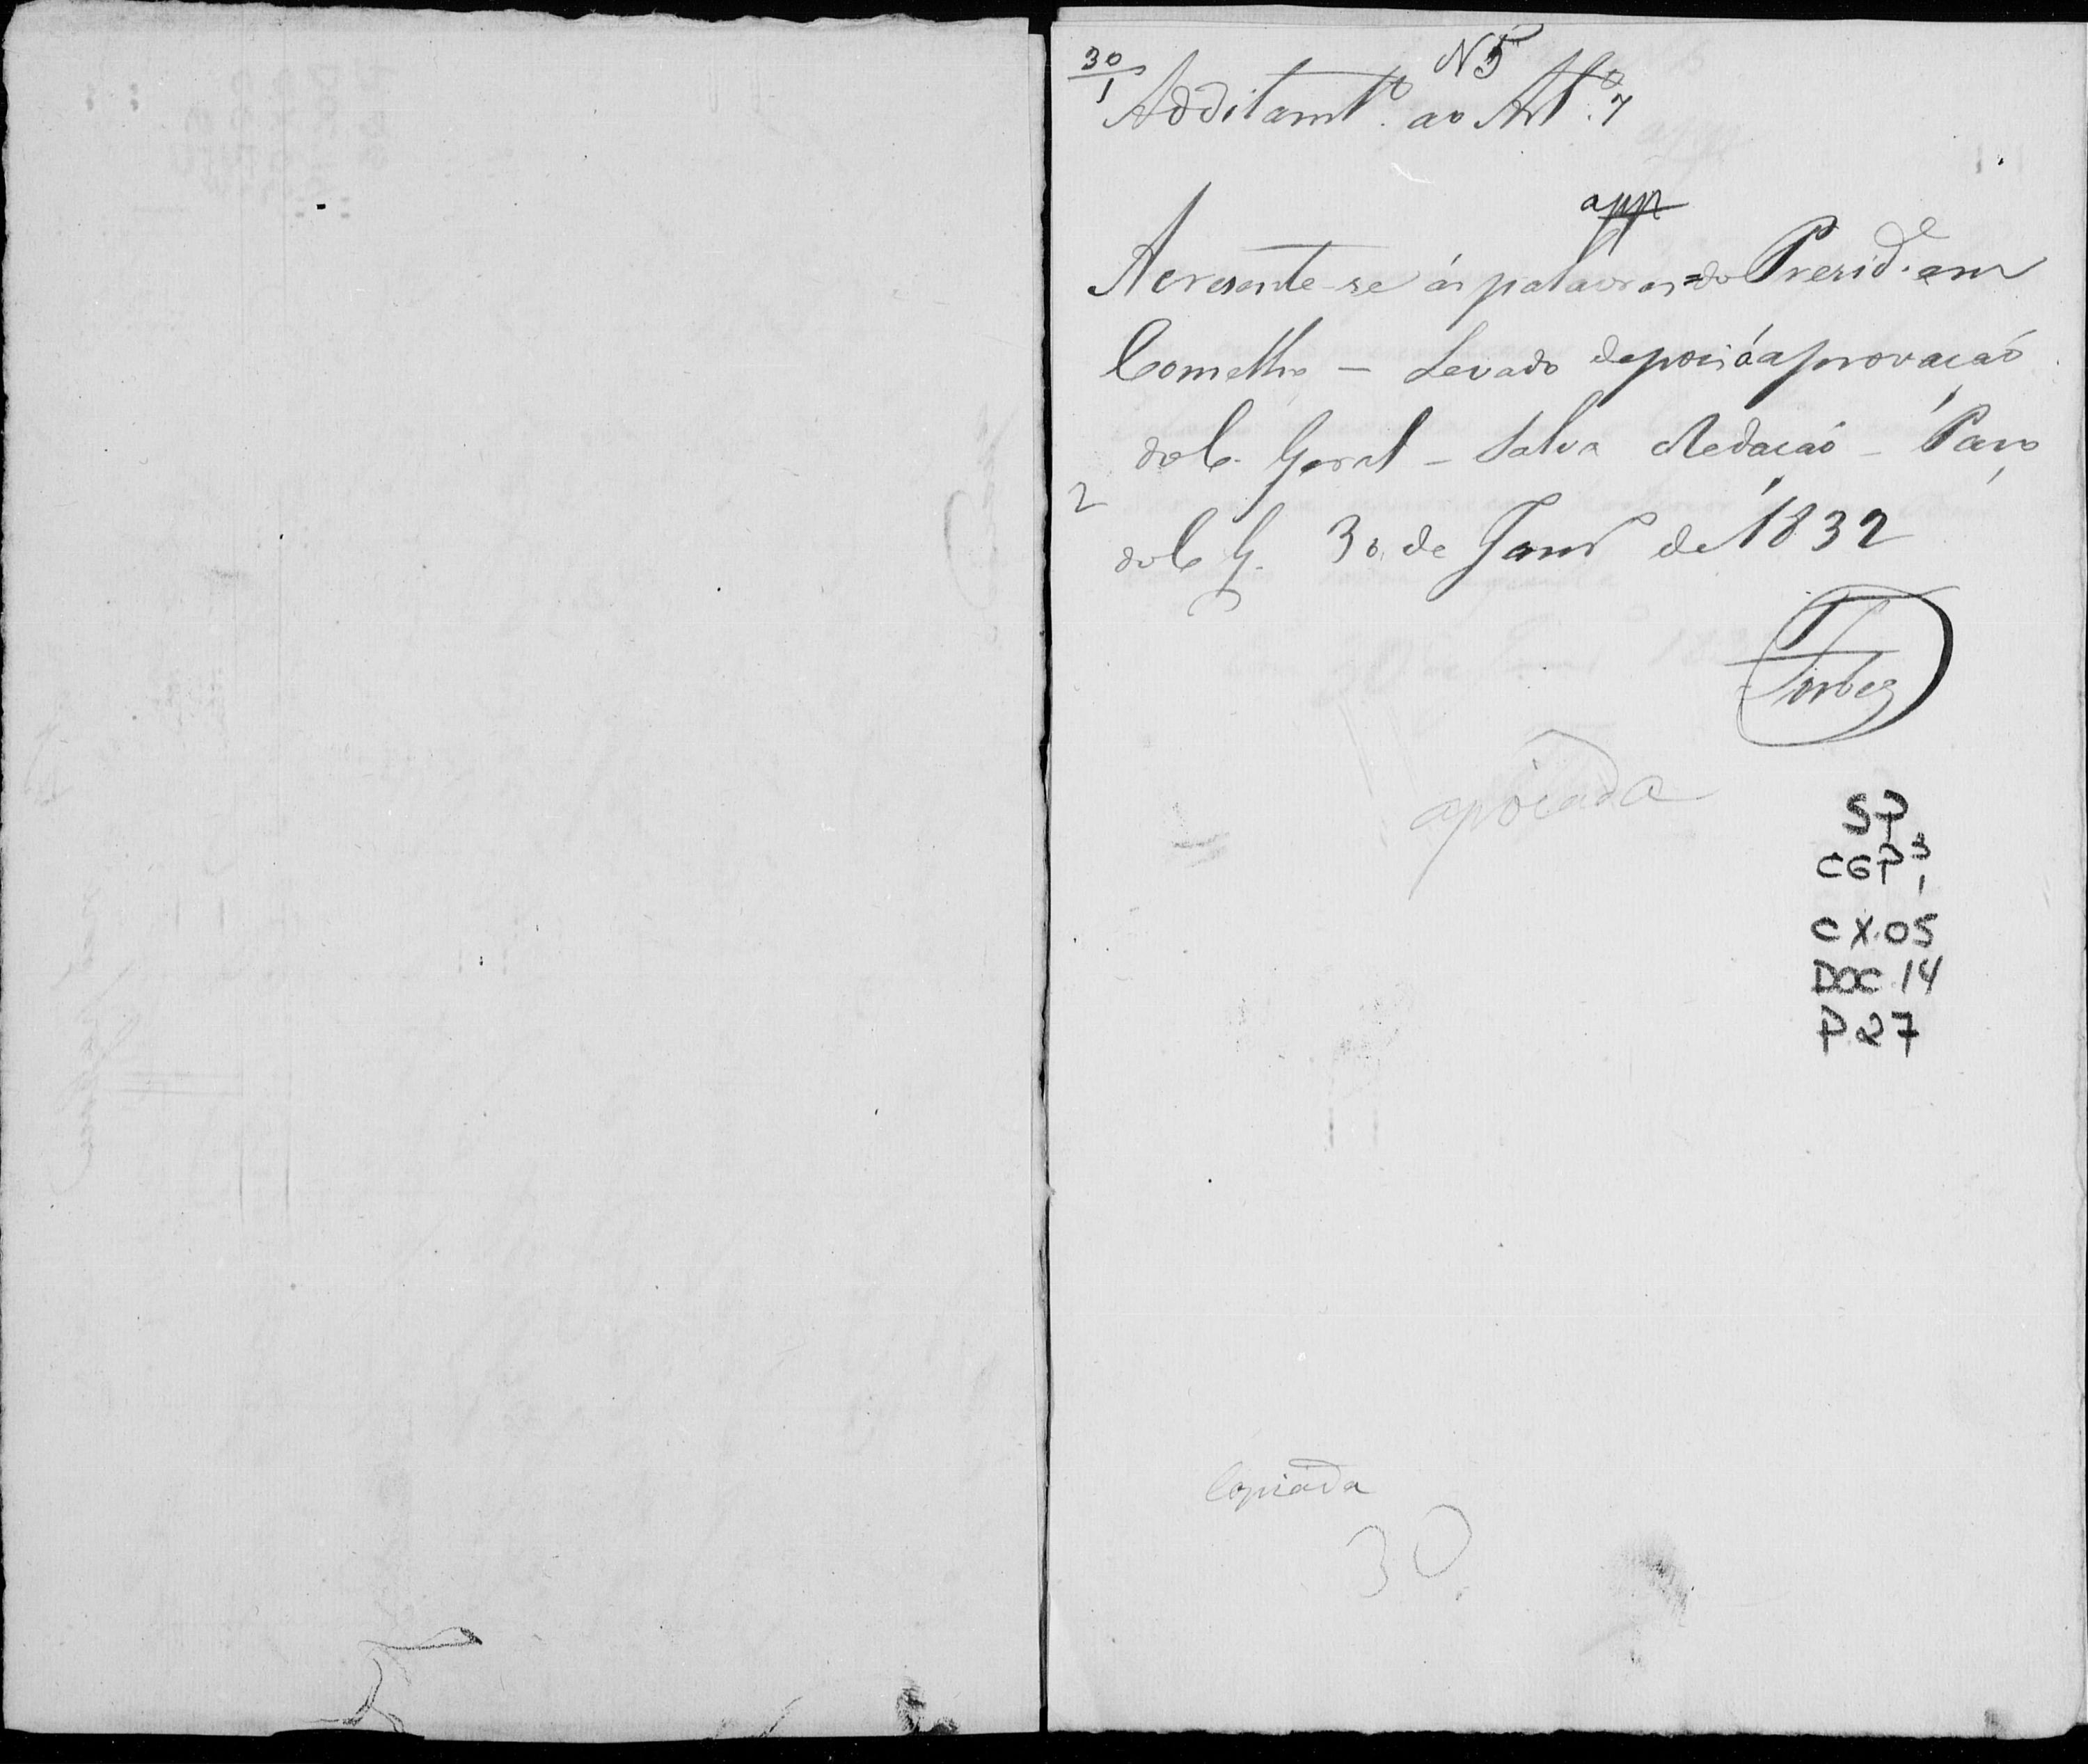 30/1
N 5
Additamto. ao Arto. 7
app
Acresente-se ás palavras = do Preside. em
Comelho - Levado depois á aprovação
do C. Geral - Salva a Redacaõ - Paço
2
do C G. 30 de Janro de 1832
Torbes
apoiada
SP
CGP 3
1
CX.05
DOC 14
P.27
Copiada
30